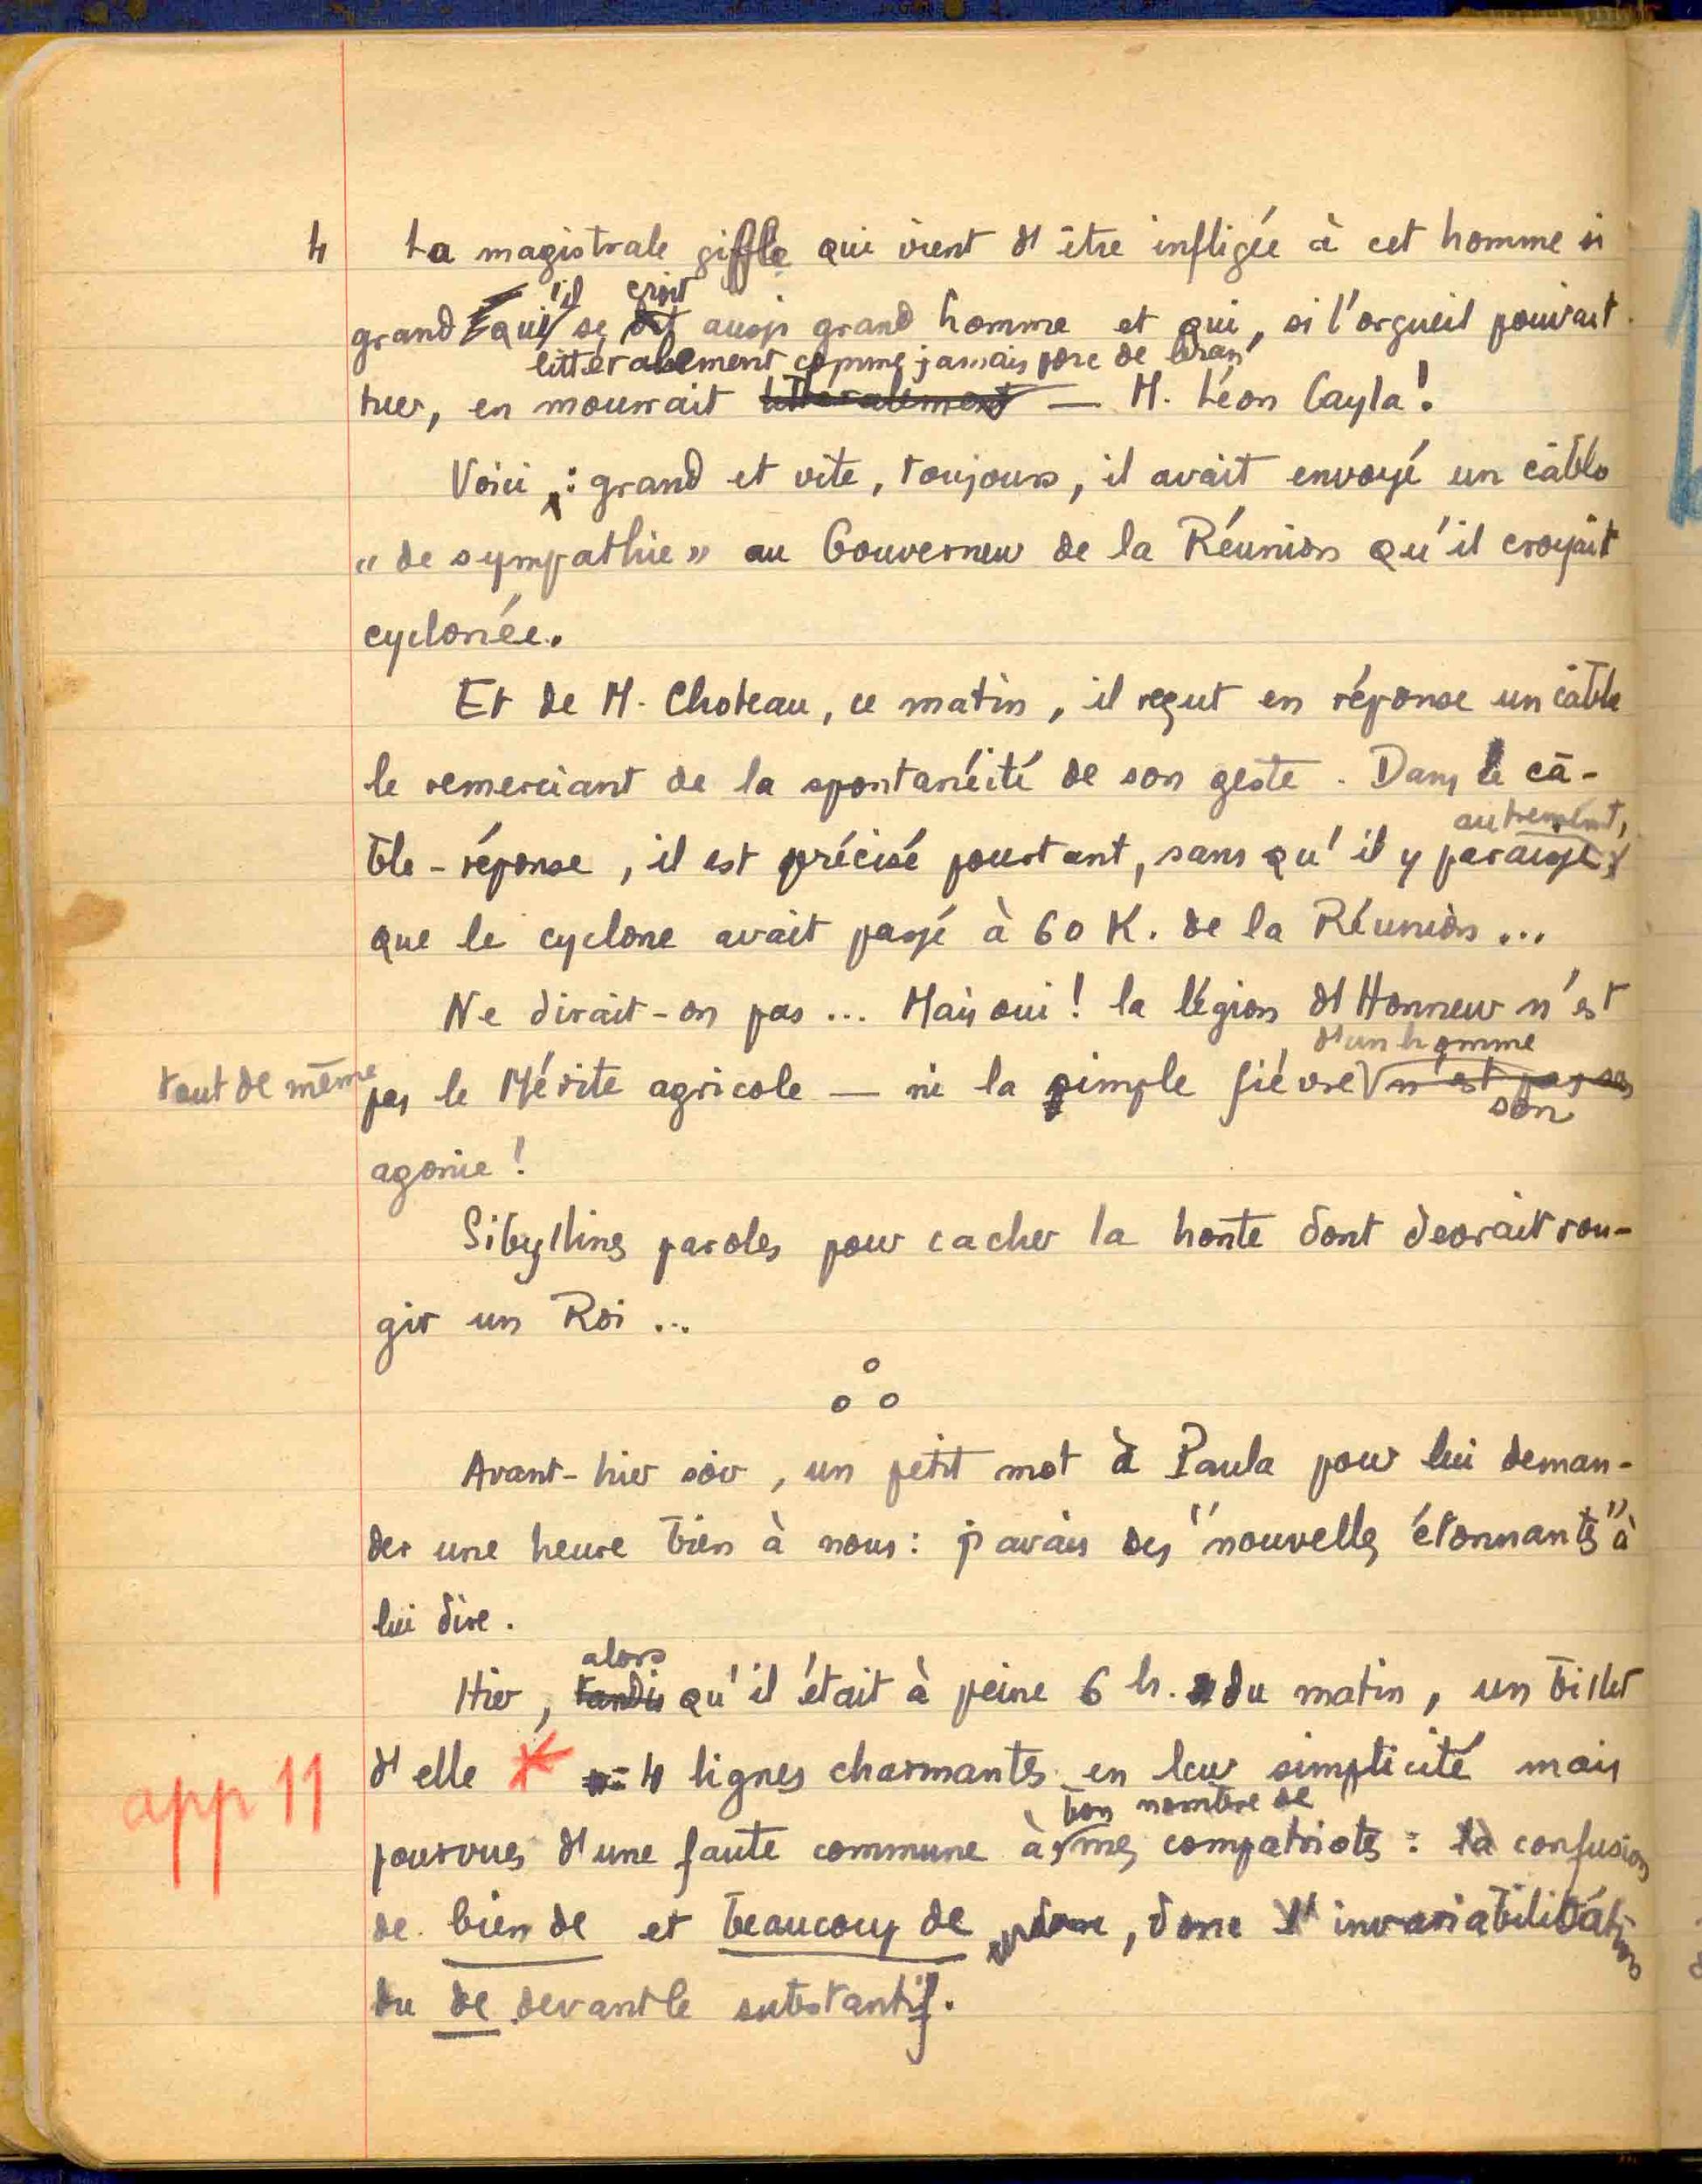 4 La magistrale giffle qui vient d'être infligée à cet homme si
'il croit
grand qu se dit aussi grand homme et qui, si l'orgueil pouvait
littéralement comme jamais porc de
tuer, en mourrait littéralement — M. Léon Cayla!
Voici : grand et vite, toujours, il avait envoyé un câble
« de sympathie » au Gouverneur de la Réunion qu'il croyait
cyclonée.
Et de M. Choteau, ce matin, il reçut en réponse un câble
le remerciant de la spontanéité de son geste. Dans le câ-
autrement,
ble-réponse, il est précisé pourtant, sans qu'il y paraisse
que le cyclone avait passé à 60 K. de la Réunion...
Ne dirait-on pas... Mais oui! la légion d'Honneur n'est
d'un homme
tout de même pas le Mérite agricole — ni la simple fièvre n'est pas sa
son
agonie!
Sibyllines paroles pour cacher la honte dont devrait rou-
gir un Roi...
Avant-hier soir, un petit mot à Paula pour lui deman-
der une heure bien à nous: j'avais des "nouvelles étonnantes" à
lui dire.
alors
Hier, tandis qu'il était à peine 6 h. du matin, un billet
app 11 d'elle * 4 lignes charmantes en leur simplicité mais
bon nombre de
pourvues d'une faute commune à mes compatriotes: la confusion
de bien de et beaucoup de, donc l'invariabilité
du de devant le substantif.